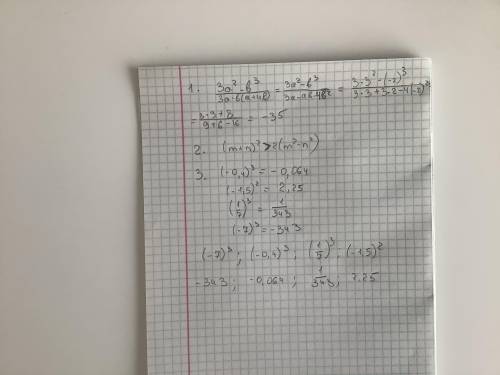 1. (3a² - b³)/(3a - b(a + 4b)) = (3a² - b³)/(3a - ab - 4b²) = (3·3² - (-2)³)/(3·3 + 3·2 - 4(-2)²) =
= (3·9 + 8)/(9 + 6 - 16) = -35
2. (m+n)² > 2(m² - n²)
3. (-0,4)³ = -0,064
(-1,5)² = 2,25
(1/7)³ = 1/343
(-7)³ = -343
(-7)³ ; (-0,4)³ ; (1/7)³ ; (-1,5)²
-343 ; -0,064 ; 1/343 ; 2,25